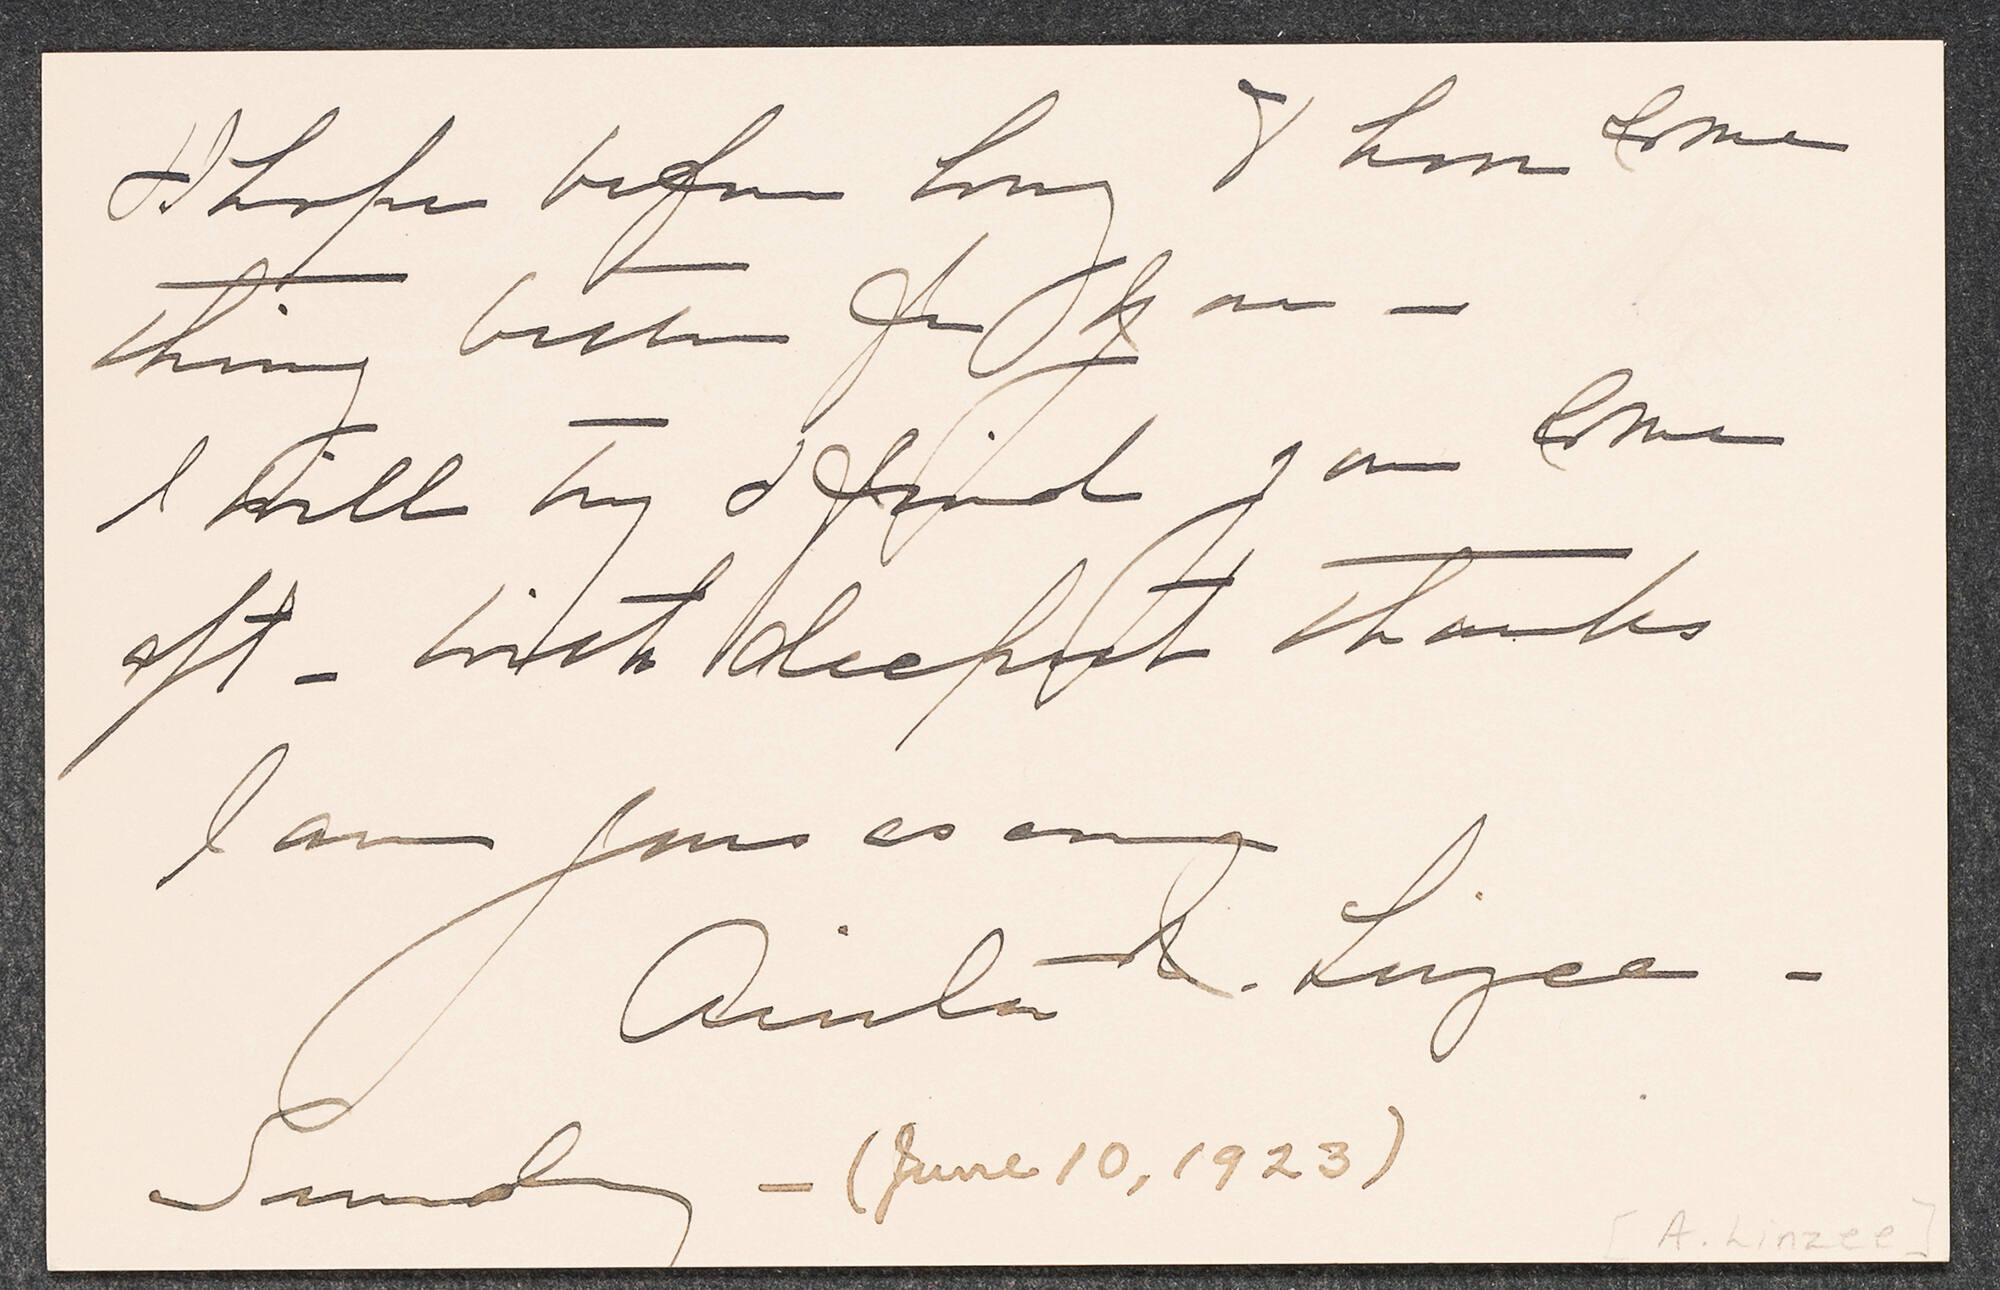 & I hope before long to have some
thing better for you –
I will try & find you some
oft – with deepest thanks
I am yours as ever
R. Linzee –
Sunday – (June 10, 1923)
[A. Linzee]